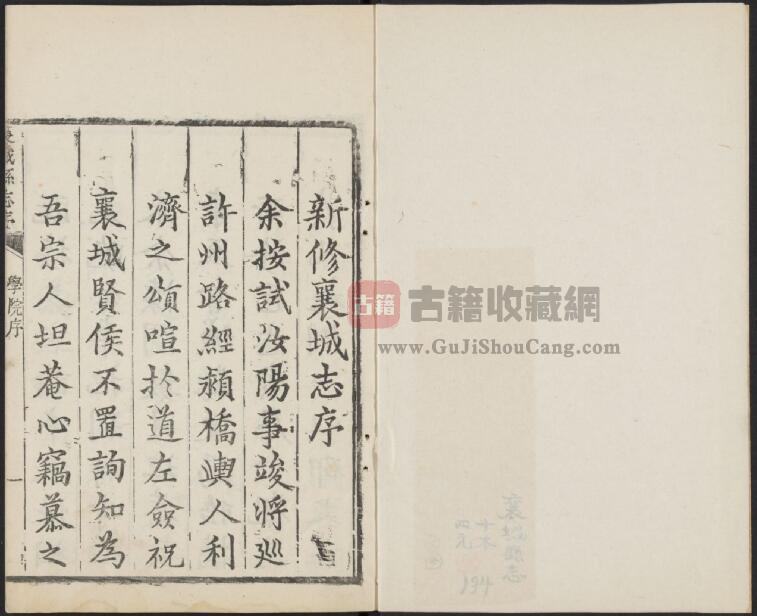 新修襄城志序
余按試汝陽事竣將廵
許州路經潁橋輿人利
濟之頌喧於道左僉祝
襄城賢侯不置詢知為
吾宗人坦菴心竊慕之
襄城縣志序
學院序
一
古籍 古籍收藏網
www.GuJiShouCang.com
襄城縣志
十本
四元
194